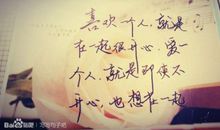 喜欢一个人，就是
在一起很开心，爱一
个人，就是即使不
开心，也想在一起
Baidu贴吧